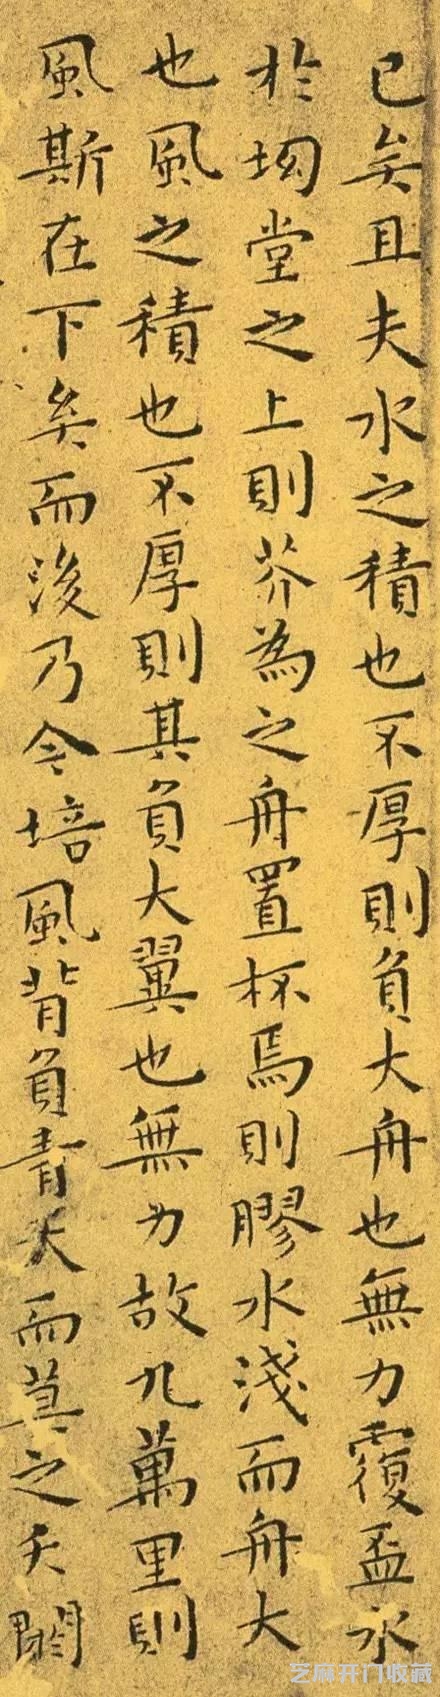 已矣且夫水之積也不厚則負大舟也無力覆盃水
於坳堂之上則芥為之舟置杯焉則膠水淺而舟大
也風之積也不厚則其負大翼也無力故九萬里則
風斯在下矣而後乃今培風背負青天而莫之夭閼
芝麻开门收藏